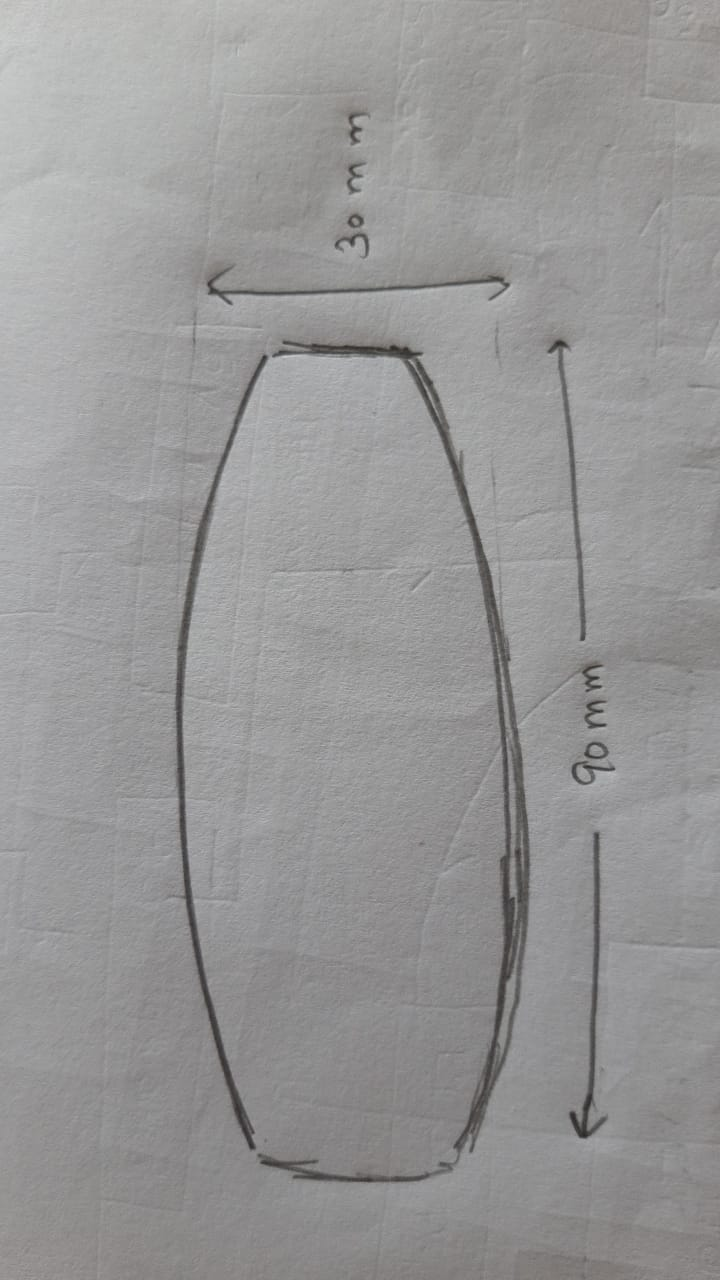 30 mm
90 mm